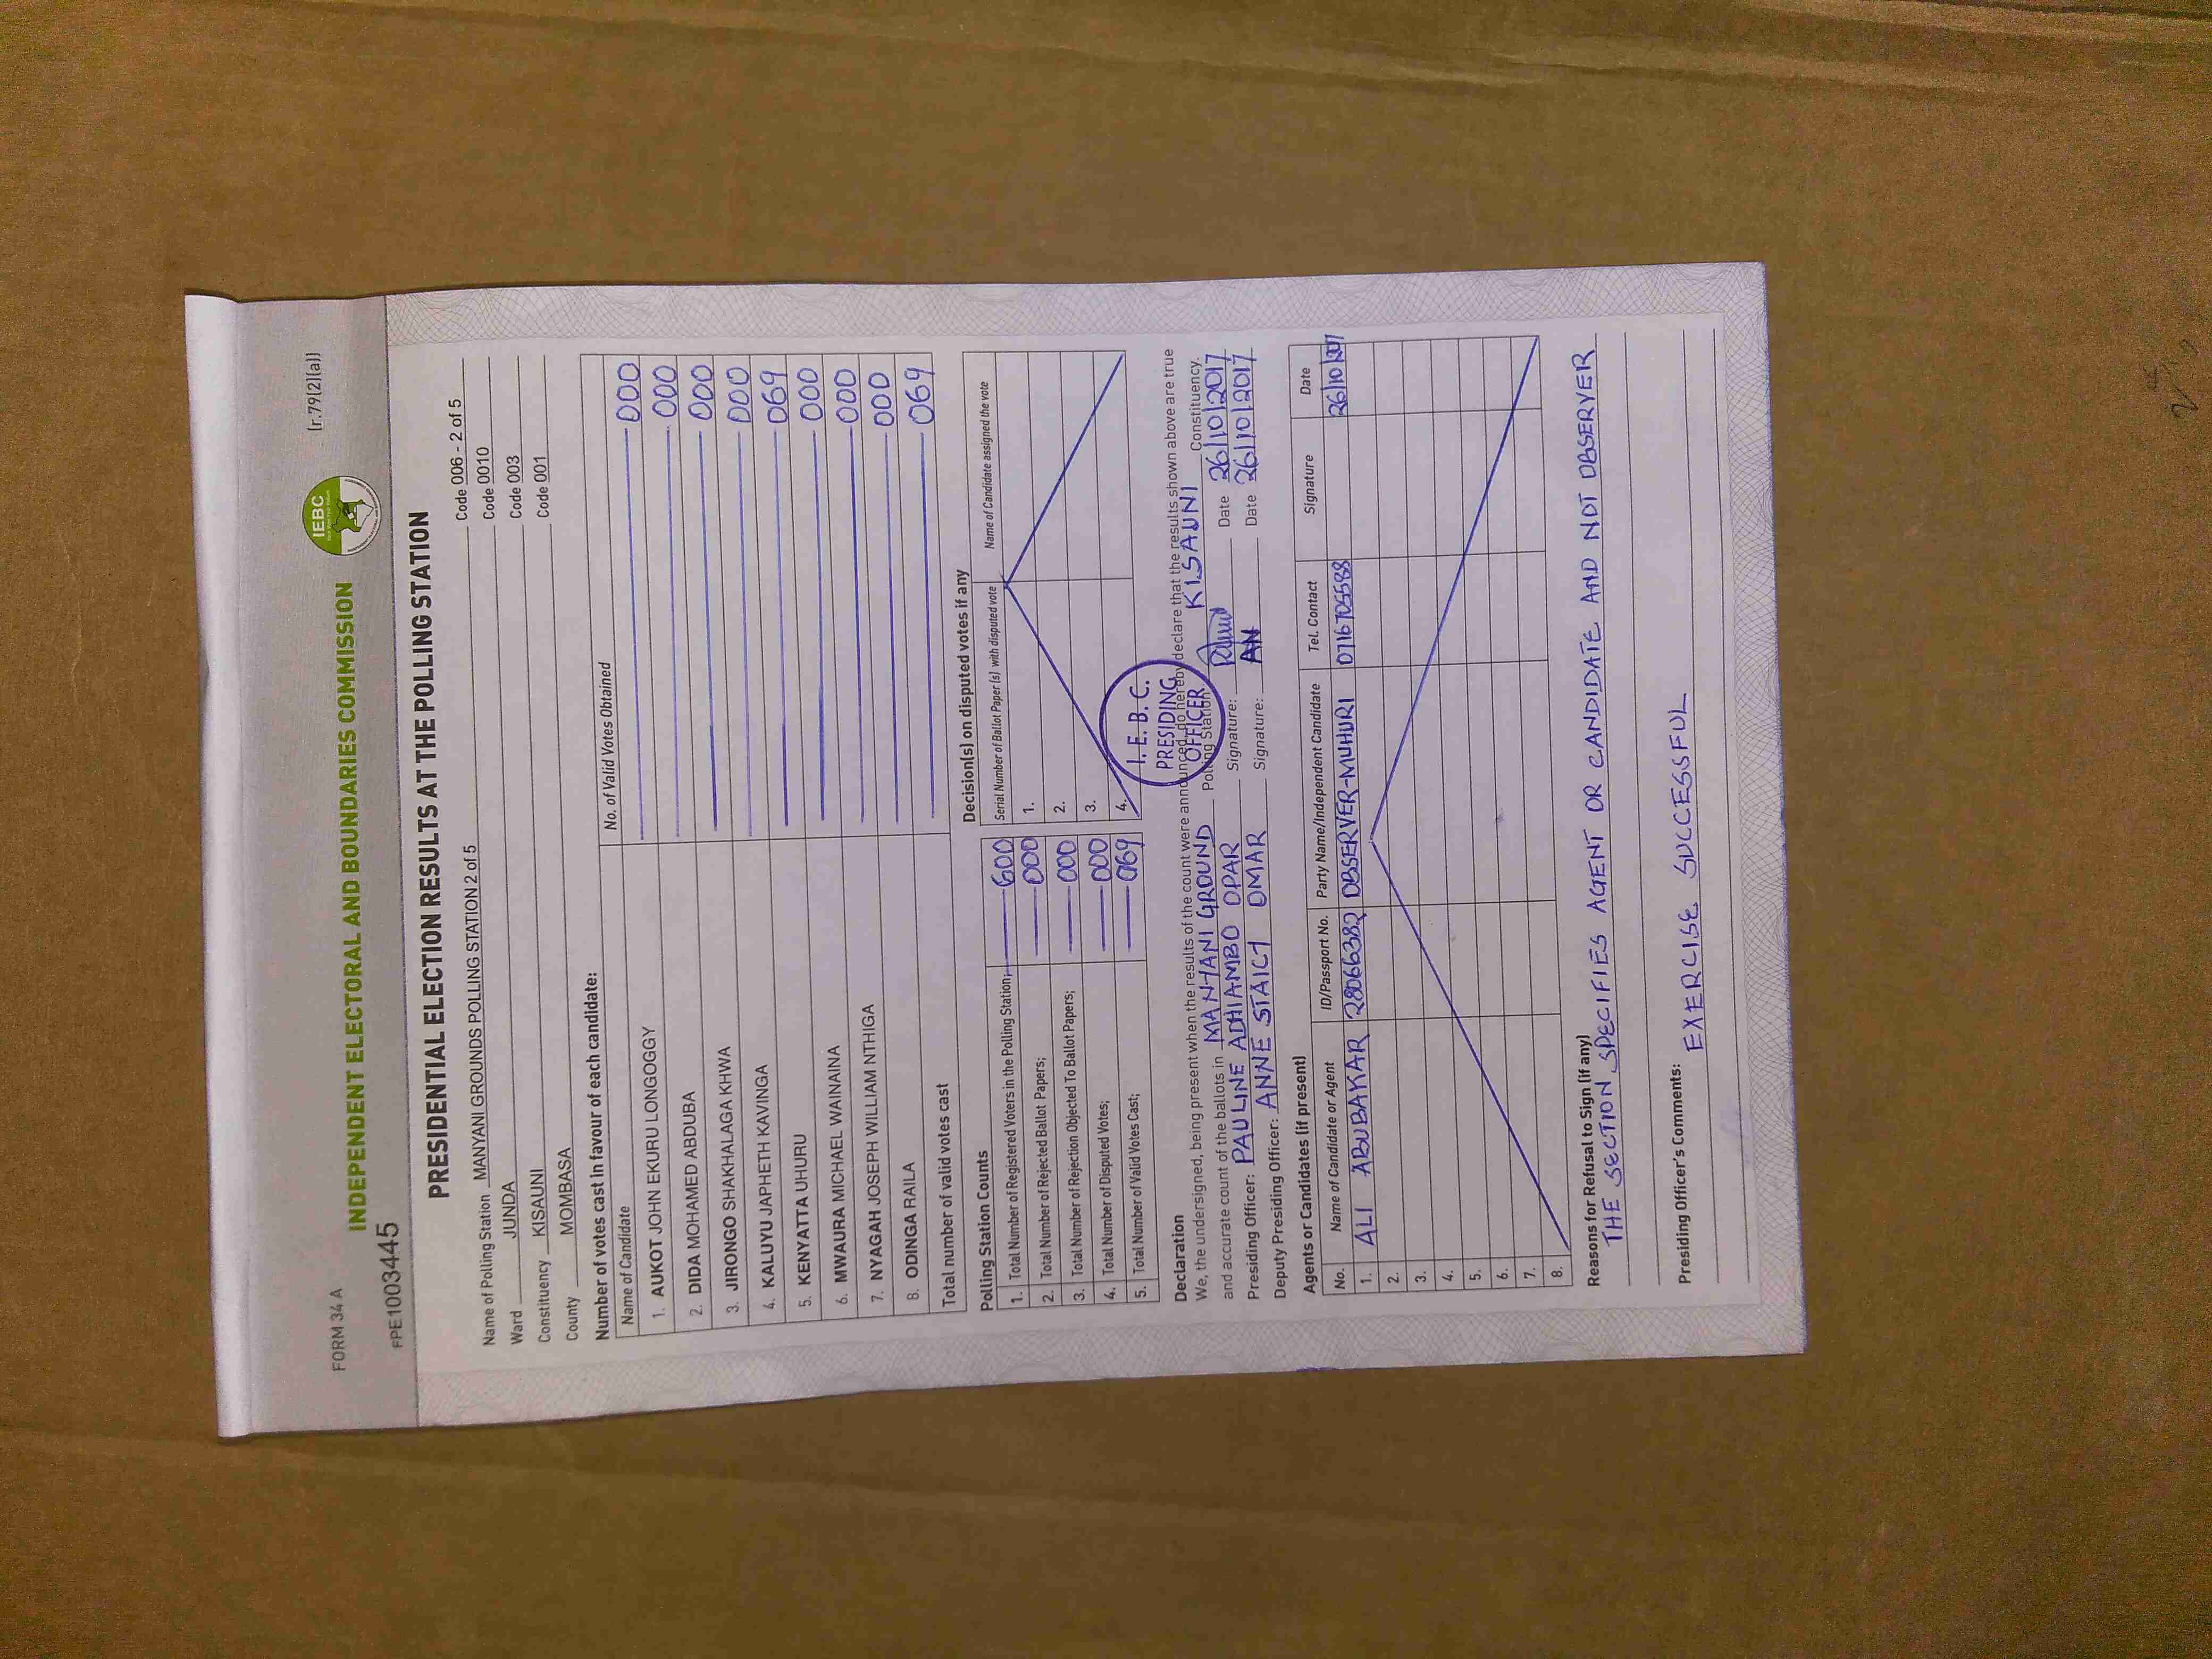 FORM 34 A
[r.79(2)(a)]
IEBC
INDEPENDENT ELECTORAL AND BOUNDARIES COMMISSION
FPE1003445
PRESIDENTIAL ELECTION RESULTS AT THE POLLING STATION
Name of Polling Station MANYANI GROUNDS POLLING STATION 2 of 5 Code 006 - 2 of 5
Ward JUNDA Code 0010
Constituency KISAUNI Code 003
County MOMBASA Code 001
Number of votes cast in favour of each candidate:
Name of Candidate No. of Valid Votes Obtained
1. AUKOT JOHN EKURU LONGOGGY 000
2. DIDA MOHAMED ABDUBA 000
3. JIRONGO SHAKHALAGA KHWA 000
4. KALUYU JAPHETH KAVINGA 000
5. KENYATTA UHURU 069
6. MWAURA MICHAEL WAINAINA 000
7. NYAGAH JOSEPH WILLIAM NTHIGA 000
8. ODINGA RAILA 000
Total number of valid votes cast 069
Polling Station Counts
1. Total Number of Registered Voters in the Polling Station; 600
2. Total Number of Rejected Ballot Papers; 000
3. Total Number of Rejection Objected To Ballot Papers; 000
4. Total Number of Disputed Votes; 000
5. Total Number of Valid Votes Cast; 069
Decision(s) on disputed votes if any
Serial Number of Ballot Paper (s) with disputed vote Name of Candidate assigned the vote
1.
2.
3.
4.
I. E. B. C.
PRESIDING
OFFICER
Declaration
We, the undersigned, being present when the results of the count were announced, do hereby declare that the results shown above are true
and accurate count of the ballots in MANYANI GROUND Polling Station KISAUNI Constituency.
Presiding Officer: PAULINE ADHIAMBO OPAR Signature: Date 26/10/2017
Deputy Presiding Officer: ANNE STAICY OMAR Signature: AN Date 26/10/2017
Agents or Candidates (if present)
No. Name of Candidate or Agent ID/Passport No. Party Name/Independent Candidate Tel. Contact Signature Date
1. ALI ABUBAKAR 28066382 OBSERVER-MUHURI 0716705588 26/10/2017
2.
3.
4.
5.
6.
7.
8.
Reasons for Refusal to Sign (if any)
THE SECTION SPECIFIES AGENT OR CANDIDATE AND NOT OBSERVER
Presiding Officer's Comments:
EXERCISE SUCCESSFUL